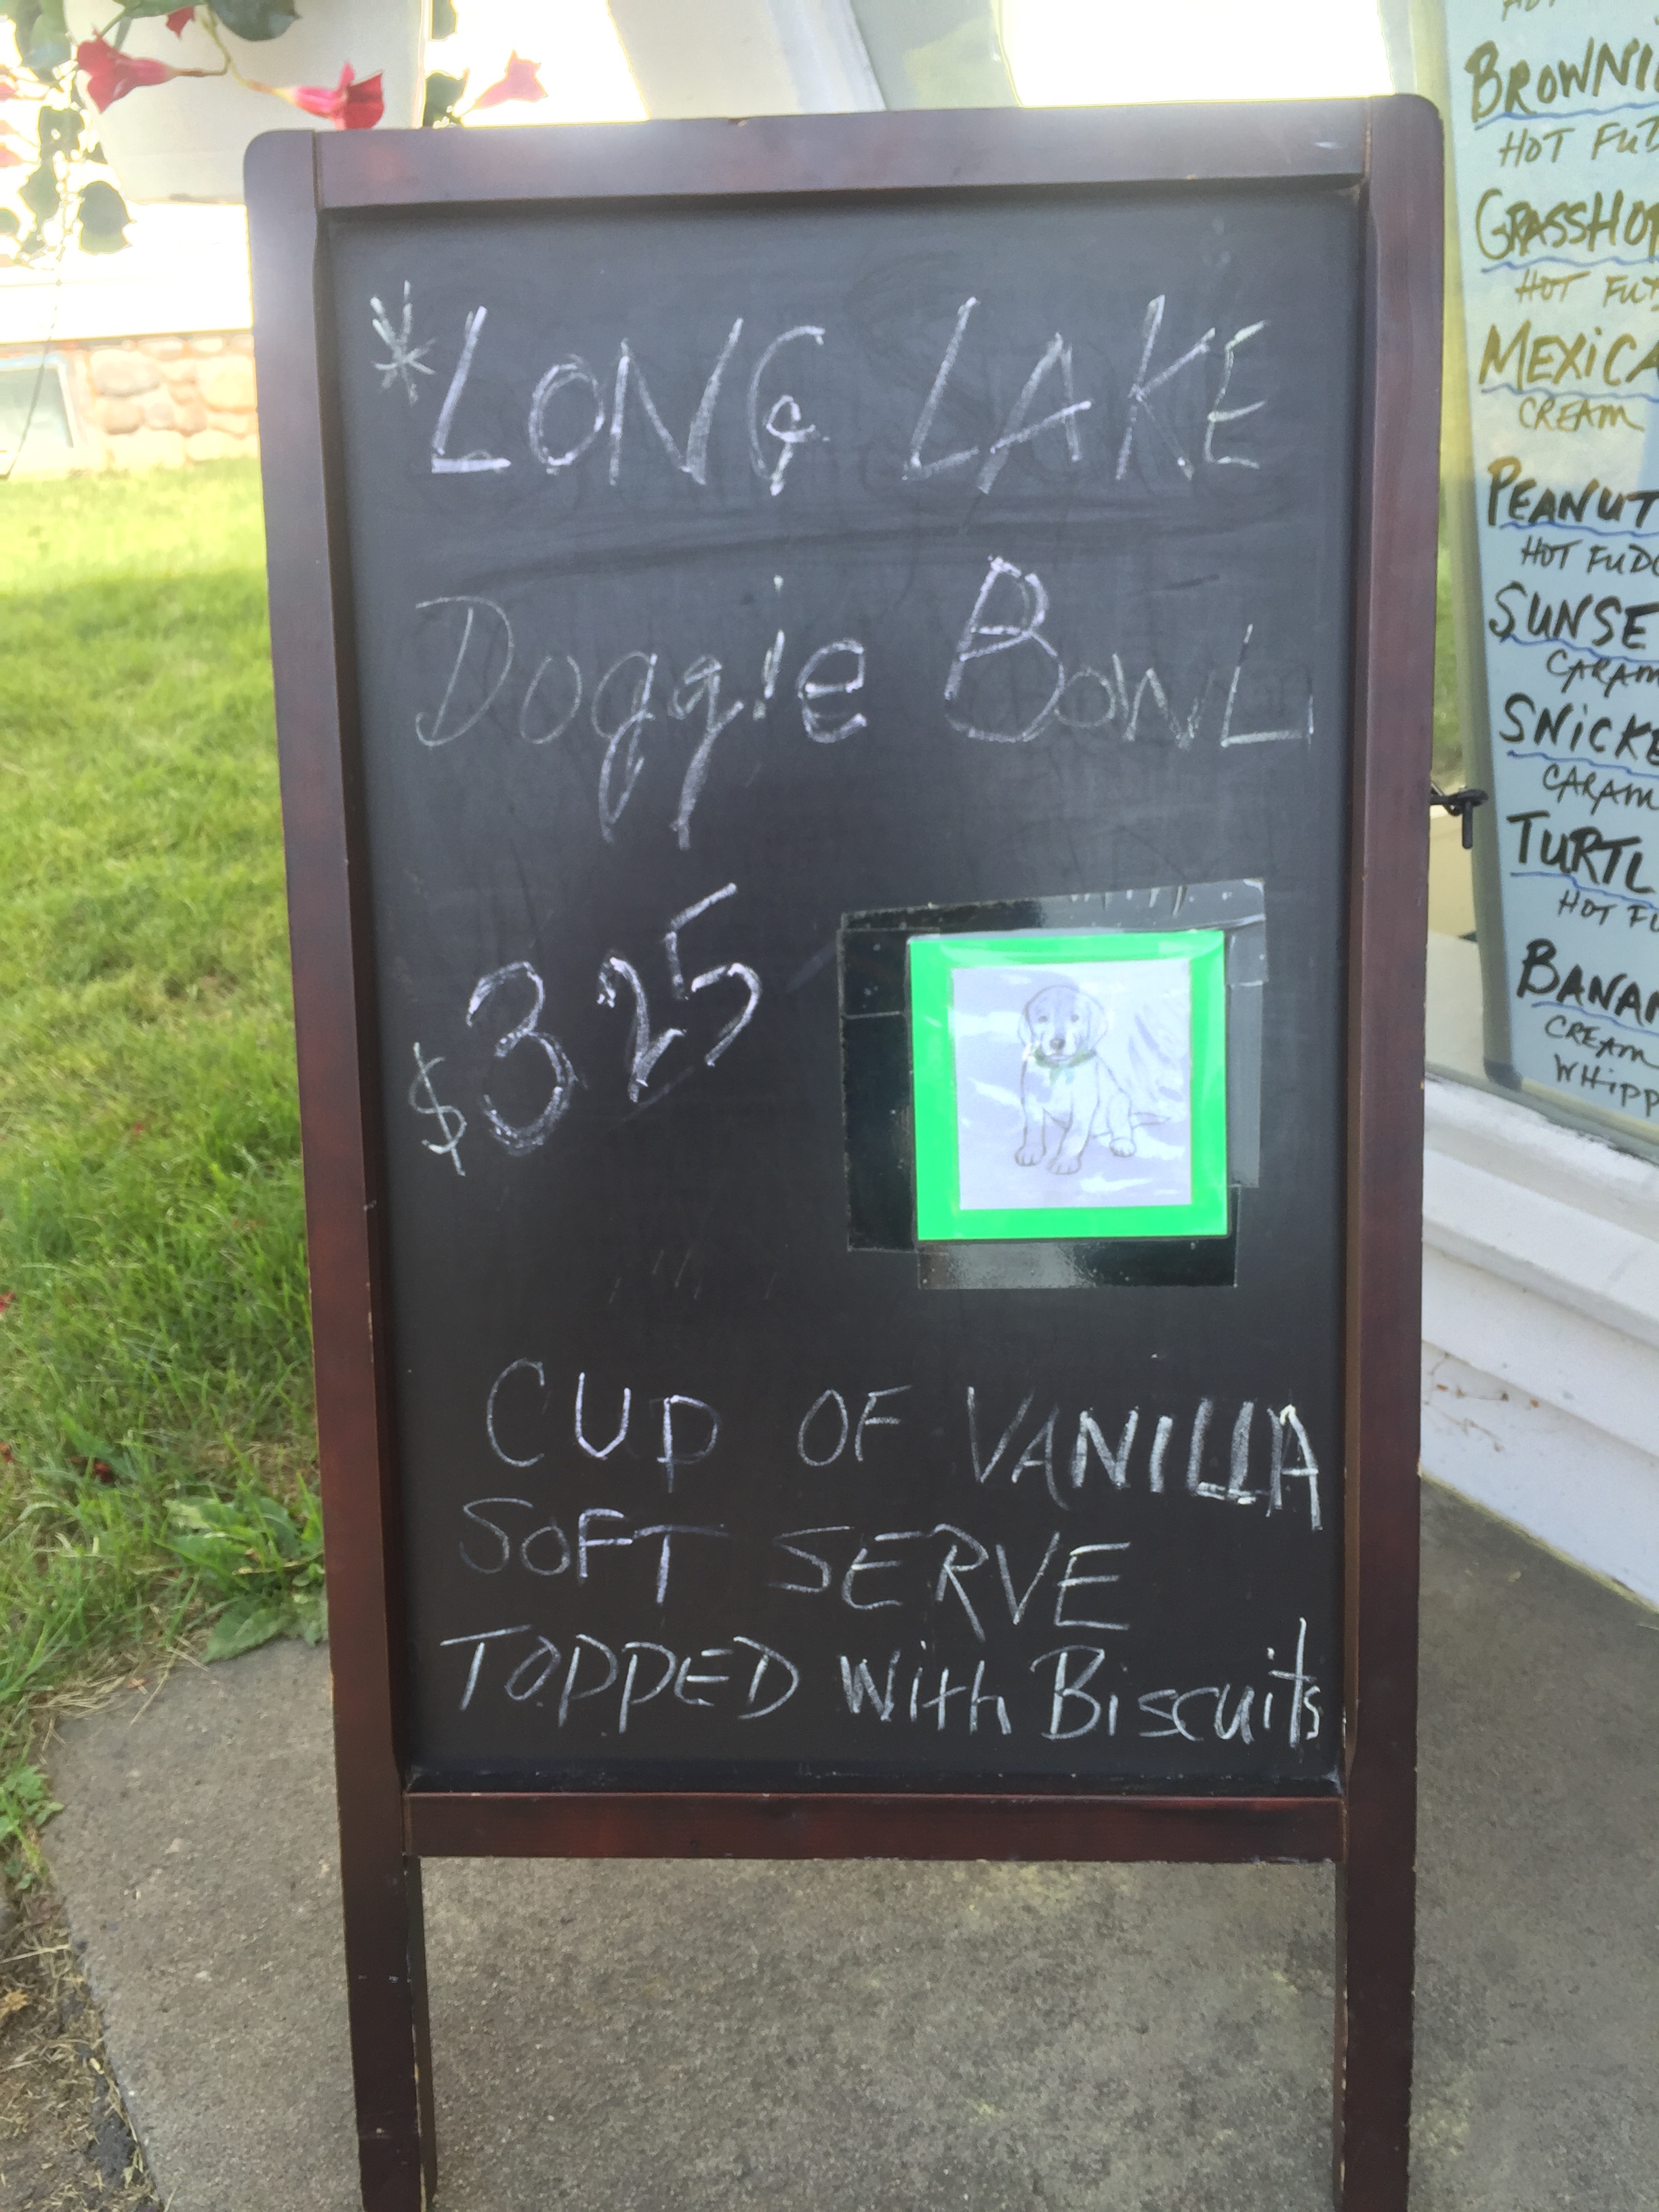 *LONG LAKE
Doggie BOWL
$3.25
CUP OF VANILLA
SOFT SERVE
TOPPED With Biscuits
HOT FUD
GRASSHOP
HOT FU
MEXICA
CREAM
PEANUT
HOT FUDG
SUNSE
CARAM
SNICKE
CARAM
TURTL
HOT FU
BANAN
CREAM
WHIPP